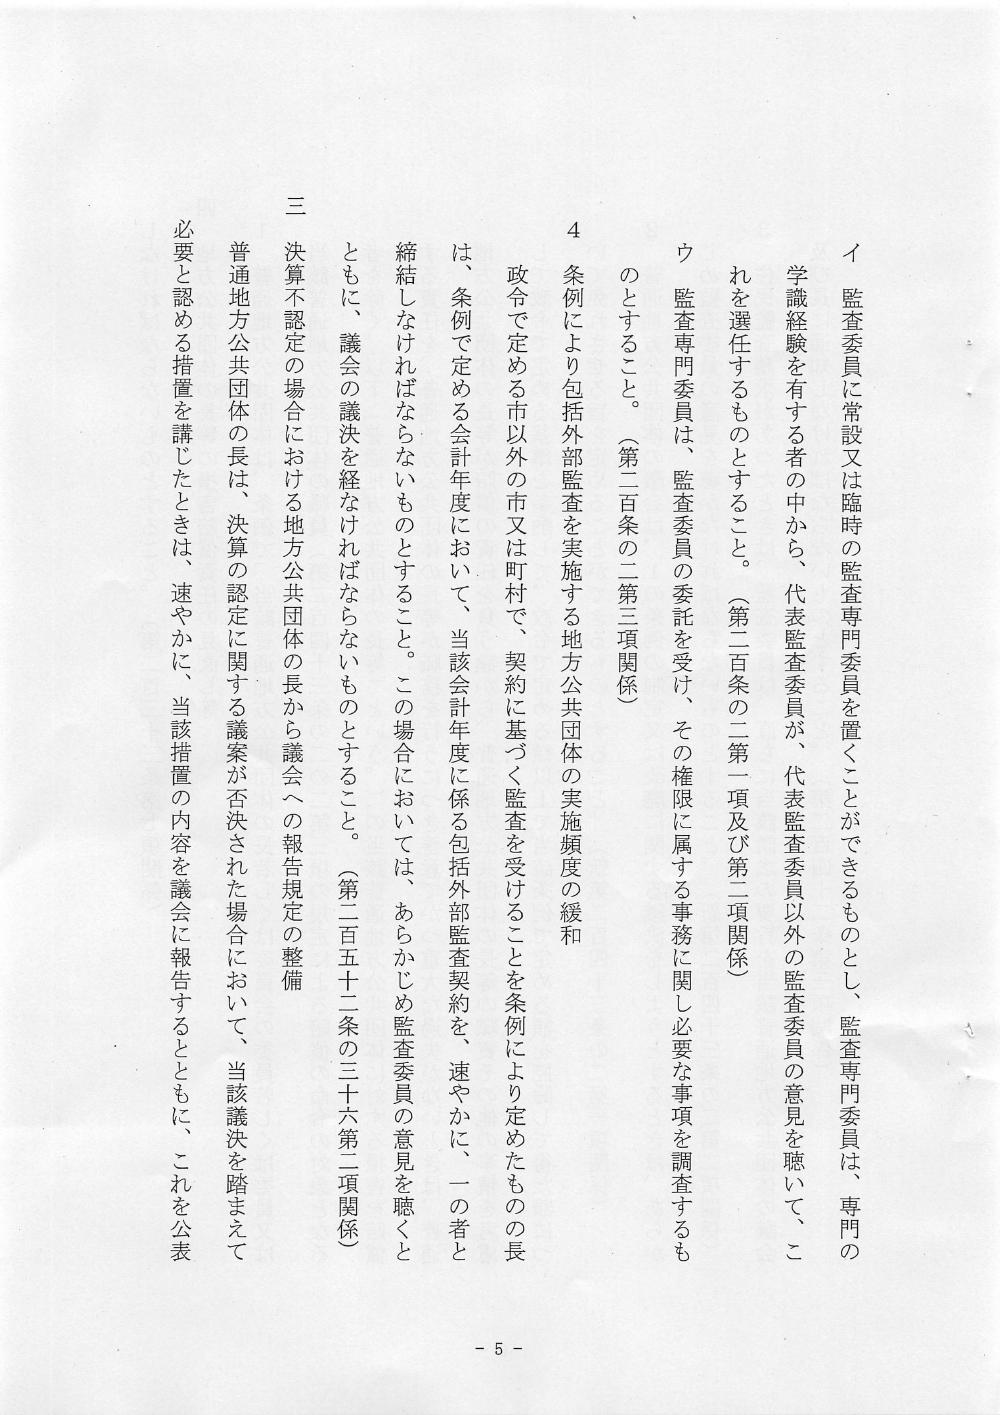 イ　監査委員に常設又は臨時の監査専門委員を置くことができるものとし、監査専門委員は、専門の
学識経験を有する者の中から、代表監査委員が、代表監査委員以外の監査委員の意見を聴いて、こ
れを選任するものとすること。（第二百条の二第一項及び第二項関係）
ウ　監査専門委員は、監査委員の委託を受け、その権限に属する事務に関し必要な事項を調査するも
のとすること。（第二百条の二第三項関係）
4　条例により包括外部監査を実施する地方公共団体の実施頻度の緩和
政令で定める市以外の市又は町村で、契約に基づく監査を受けることを条例により定めたものの長
は、条例で定める会計年度において、当該会計年度に係る包括外部監査契約を、速やかに、一の者と
締結しなければならないものとすること。この場合においては、あらかじめ監査委員の意見を聴くと
ともに、議会の議決を経なければならないものとすること。（第二百五十二条の三十六第二項関係）
三　決算不認定の場合における地方公共団体の長から議会への報告規定の整備
普通地方公共団体の長は、決算の認定に関する議案が否決された場合において、当該議決を踏まえて
必要と認める措置を講じたときは、速やかに、当該措置の内容を議会に報告するとともに、これを公表
- 5 -